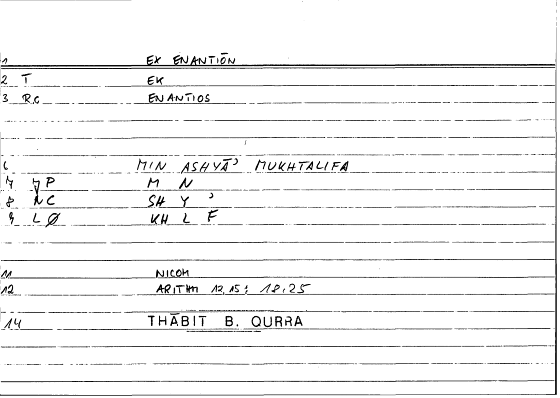 1 EX ENANTIŌN
2 T EK
3 RC ENANTIOS
6 MIN ASHYĀʾ MUKHTALIFA
7 JP M N
8 NC SH Y ʾ
9 LØ KH L F
11 NICOM
12 ARITHM 12,15; 18,25
14 THĀBIT B. QURRA